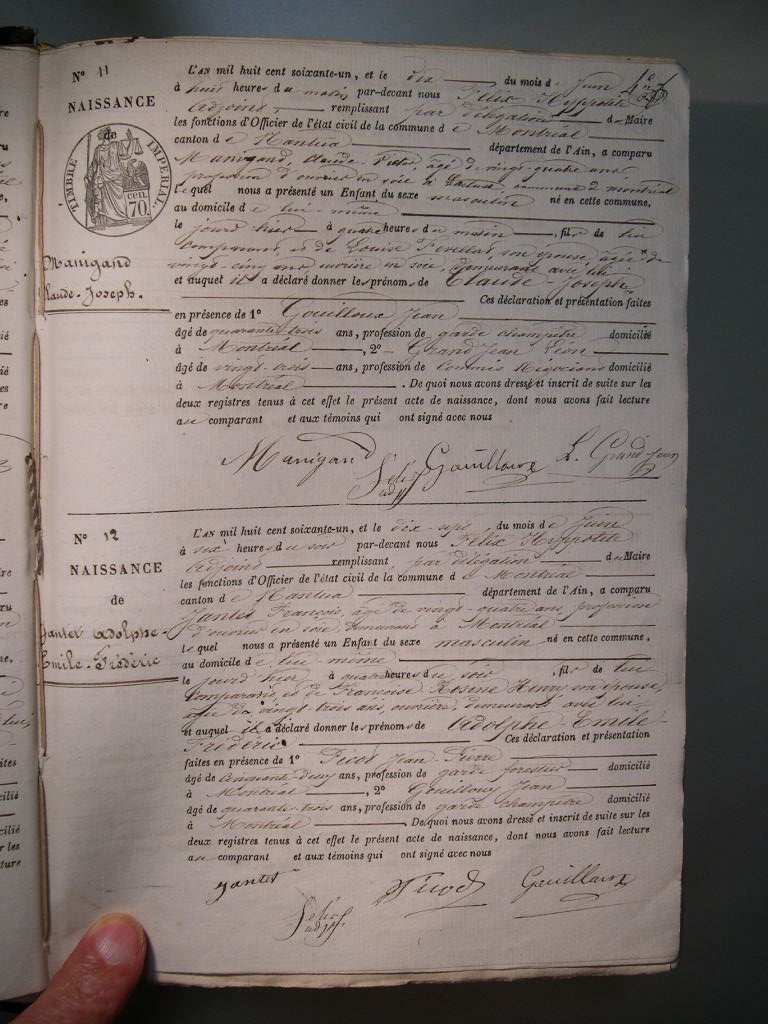 N° 11
NAISSANCE
de
TIMBRE IMPERIAL
70 cen
Manigand
Claude-Joseph.
L'AN mil huit cent soixante-un, et le dix du mois de Juin
à huit heures du matin par-devant nous Félix Hyppolite
Adjoint remplissant par délégation de Maire
les fonctions d'Officier de l'état civil de la commune de Montréal
canton de Nantua département de l'Ain, a comparu
Manigand, Claude âgé de vingt-quatre ans,
profession d'ouvrier en soie à commune de Montréal
Lequel nous a présenté un Enfant du sexe masculin né en cette commune,
au domicile de lui-même
le jourd'hier à quatre heures du matin, fils de lui
comparant, et de Louise son épouse, âgée de
vingt-cinq ans ouvrière en soie, demeurant avec lui
et auquel il a déclaré donner les prénoms de Claude-Joseph
Ces déclaration et présentation faites
en présence de 1° Gouilloux Jean
âgé de quarante-trois ans, profession de garde champêtre domicilié
à Montréal, 2° Grand Jean Léon
âgé de vingt-trois ans, profession de Commis Négociant domicilié
à Montréal. De quoi nous avons dressé et inscrit de suite sur les
deux registres tenus à cet effet le présent acte de naissance, dont nous avons fait lecture
au comparant et aux témoins qui ont signé avec nous
Manigand Felix Gouilloux L. Grand Jean
adj
N° 12
NAISSANCE
de
Jantet Adolphe-
Emile-Fréderic
L'AN mil huit cent soixante-un, et le dix-sept du mois de Juin
à six heures du soir par-devant nous Félix Hyppolite
Adjoint remplissant par délégation de Maire
les fonctions d'Officier de l'état civil de la commune de Montréal
canton de Nantua département de l'Ain, a comparu
Jantet François, âgé de vingt-quatre ans, profession
d'ouvrier en soie demeurant à Montréal
Lequel nous a présenté un Enfant du sexe masculin né en cette commune,
au domicile de lui-même
le jourd'hier à quatre heures du soir, fils de lui
comparant et de Françoise Rosene Henry son épouse,
âgée de vingt-trois ans, ouvrière, demeurant avec lui
et auquel il a déclaré donner les prénoms de Adolphe-Emile-
Fréderic Ces déclaration et présentation
faites en présence de 1° Picod Jean-Pierre
âgé de cinquante-deux ans, profession de garde forestier domicilié
à Montréal, 2° Gouilloux Jean
âgé de quarante-trois ans, profession de garde champêtre domicilié
à Montréal. De quoi nous avons dressé et inscrit de suite sur les
deux registres tenus à cet effet le présent acte de naissance, dont nous avons fait lecture
au comparant et aux témoins qui ont signé avec nous
Jantet Felix Picod Gouilloux
adj